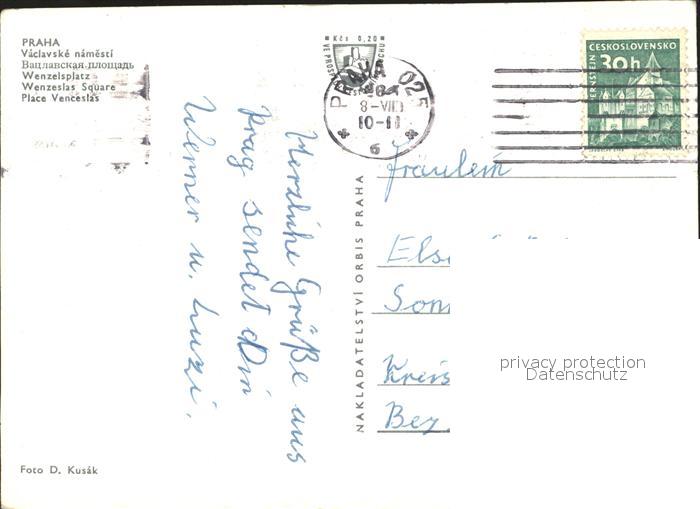 PRAHA
Václavské náměstí
Вацлавская площадь
Wenzelsplatz
Wenzeslas Square
Place Venceslas
Kčs 0,20
PRAHA 025
8-VIII
10-11
6
ČESKOSLOVENSKO
30h
PERNŠTEJN
Herzliche Grüße aus
Prag sendet Dir
Werner u. Luzi.
NAKLADATELSTVÍ ORBIS PRAHA
Fräulein
Els
Son
Kreis
Bez
privacy protection
Datenschutz
Foto D. Kusák